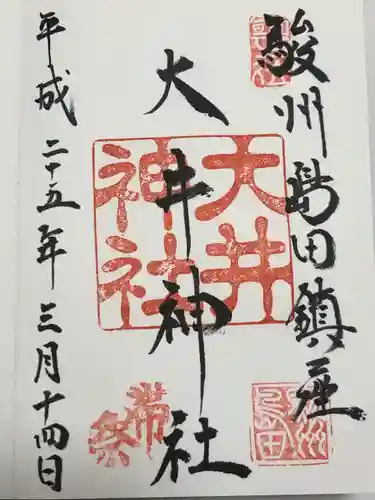 駿州島田鎮座
大井神社
平成二十五年三月十四日
大井
神社
帯祭
島田